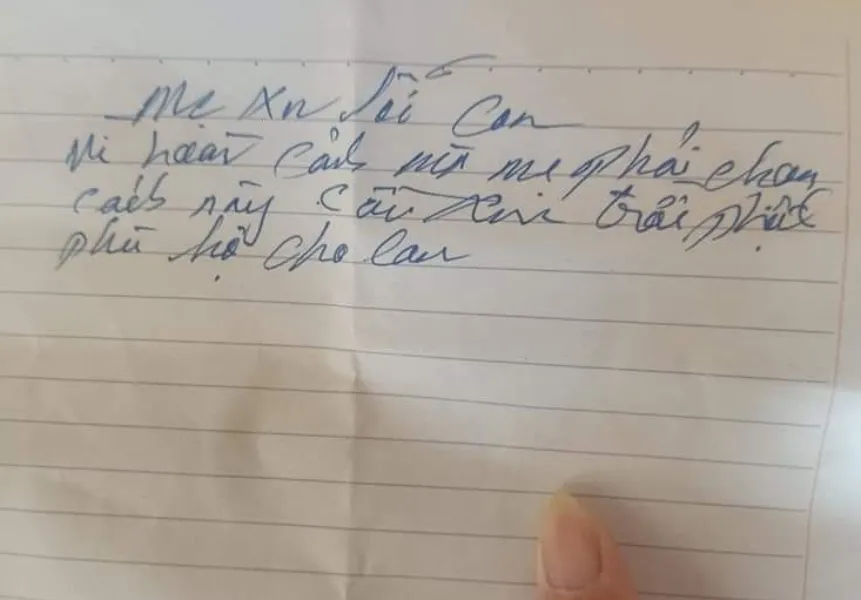 Mẹ xn lỗi con
Vì hoàn cảnh nên mẹ phải chọn
cách này cầu xin trời phật
phù hộ cho con